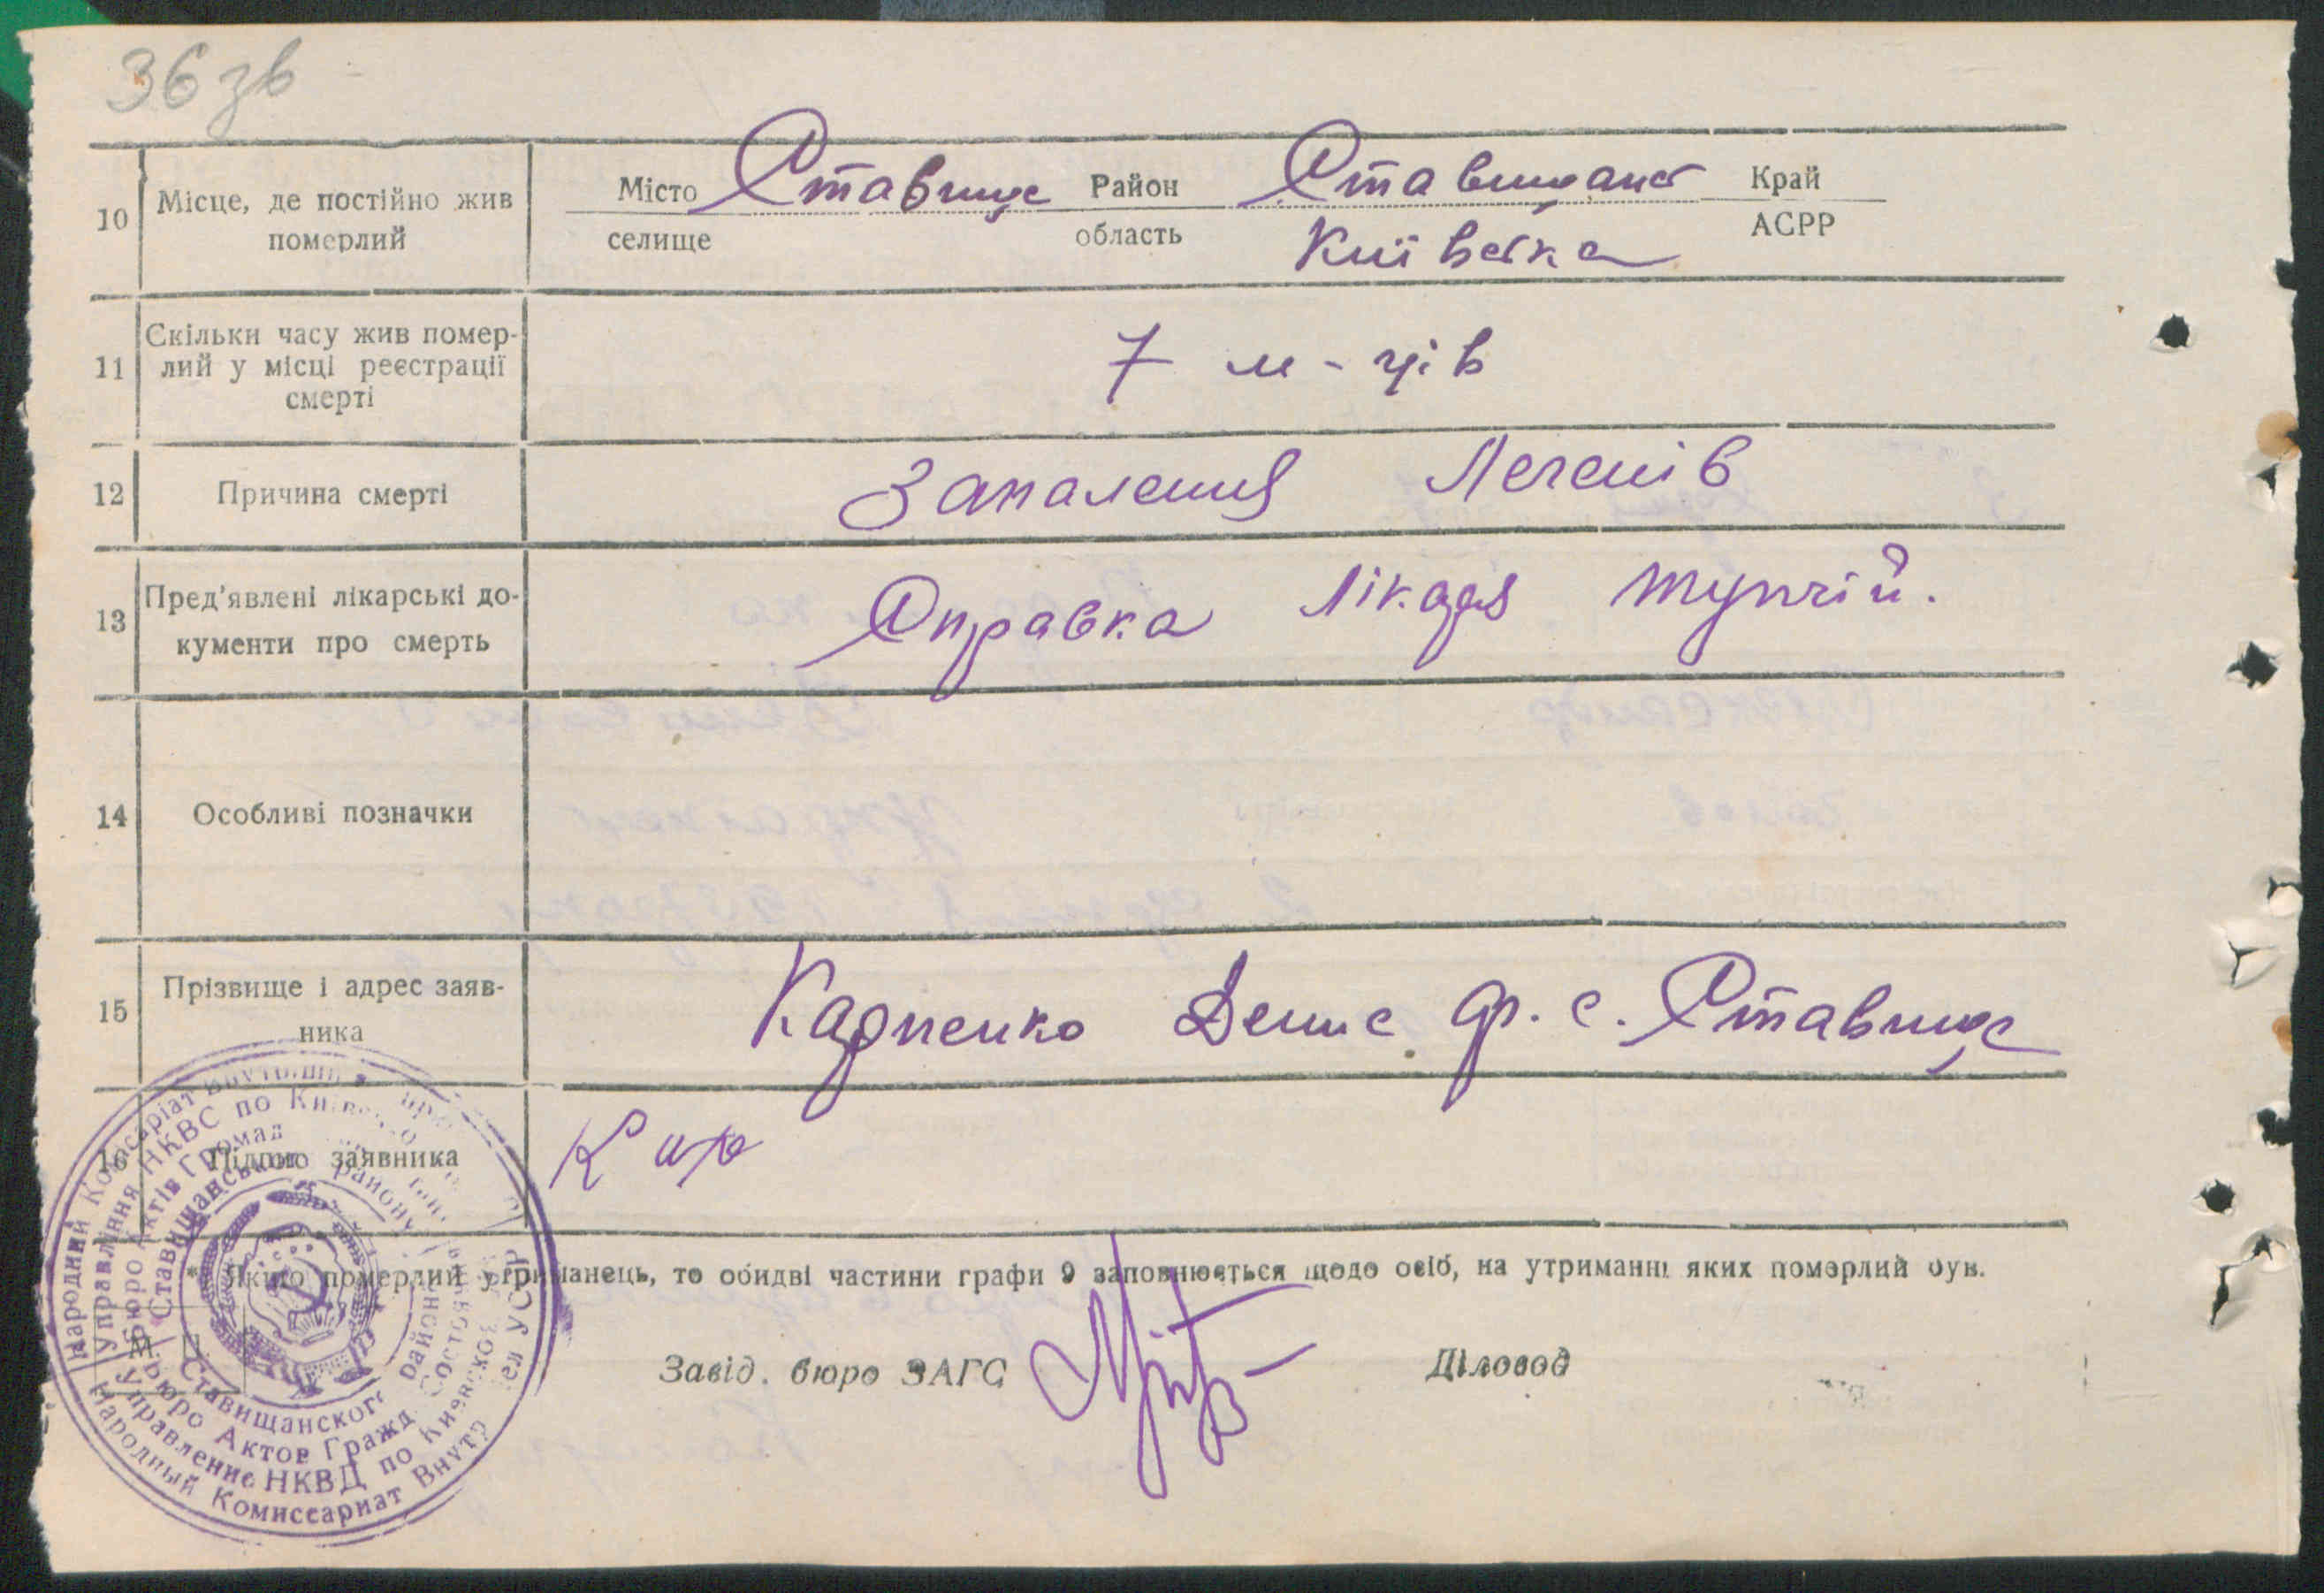 36 зв
10 Місце, де постійно жив померлий
Місто Ставище Район Ставищанс Край
селище область Київська АСРР
11 Скільки часу жив померлий у місці реєстрації смерті
7 м-ців
12 Причина смерті Запалення Легенів
13 Пред'явлені лікарські документи про смерть
Справка Лікаря
14 Особливі позначки
15 Прізвище і адрес заявника
Карпенко Денис ф. с. Ставище
16 Підпис заявника Кар
* Якщо померлий утриманець, то обидві частини графи 9 заповнюється щодо осіб, на утриманні яких померлий був.
М. П.
Завід. бюро ЗАГС Діловод
Народний Комісаріат Внутрішн
Управління НКВС по Київ
Бюро Актів Громад
Ставищанського району
Ставищанского район
Бюро Актов Гражд. Состоя
Управление НКВД по Киевской
Народный Комиссариат Внутр ел УССР